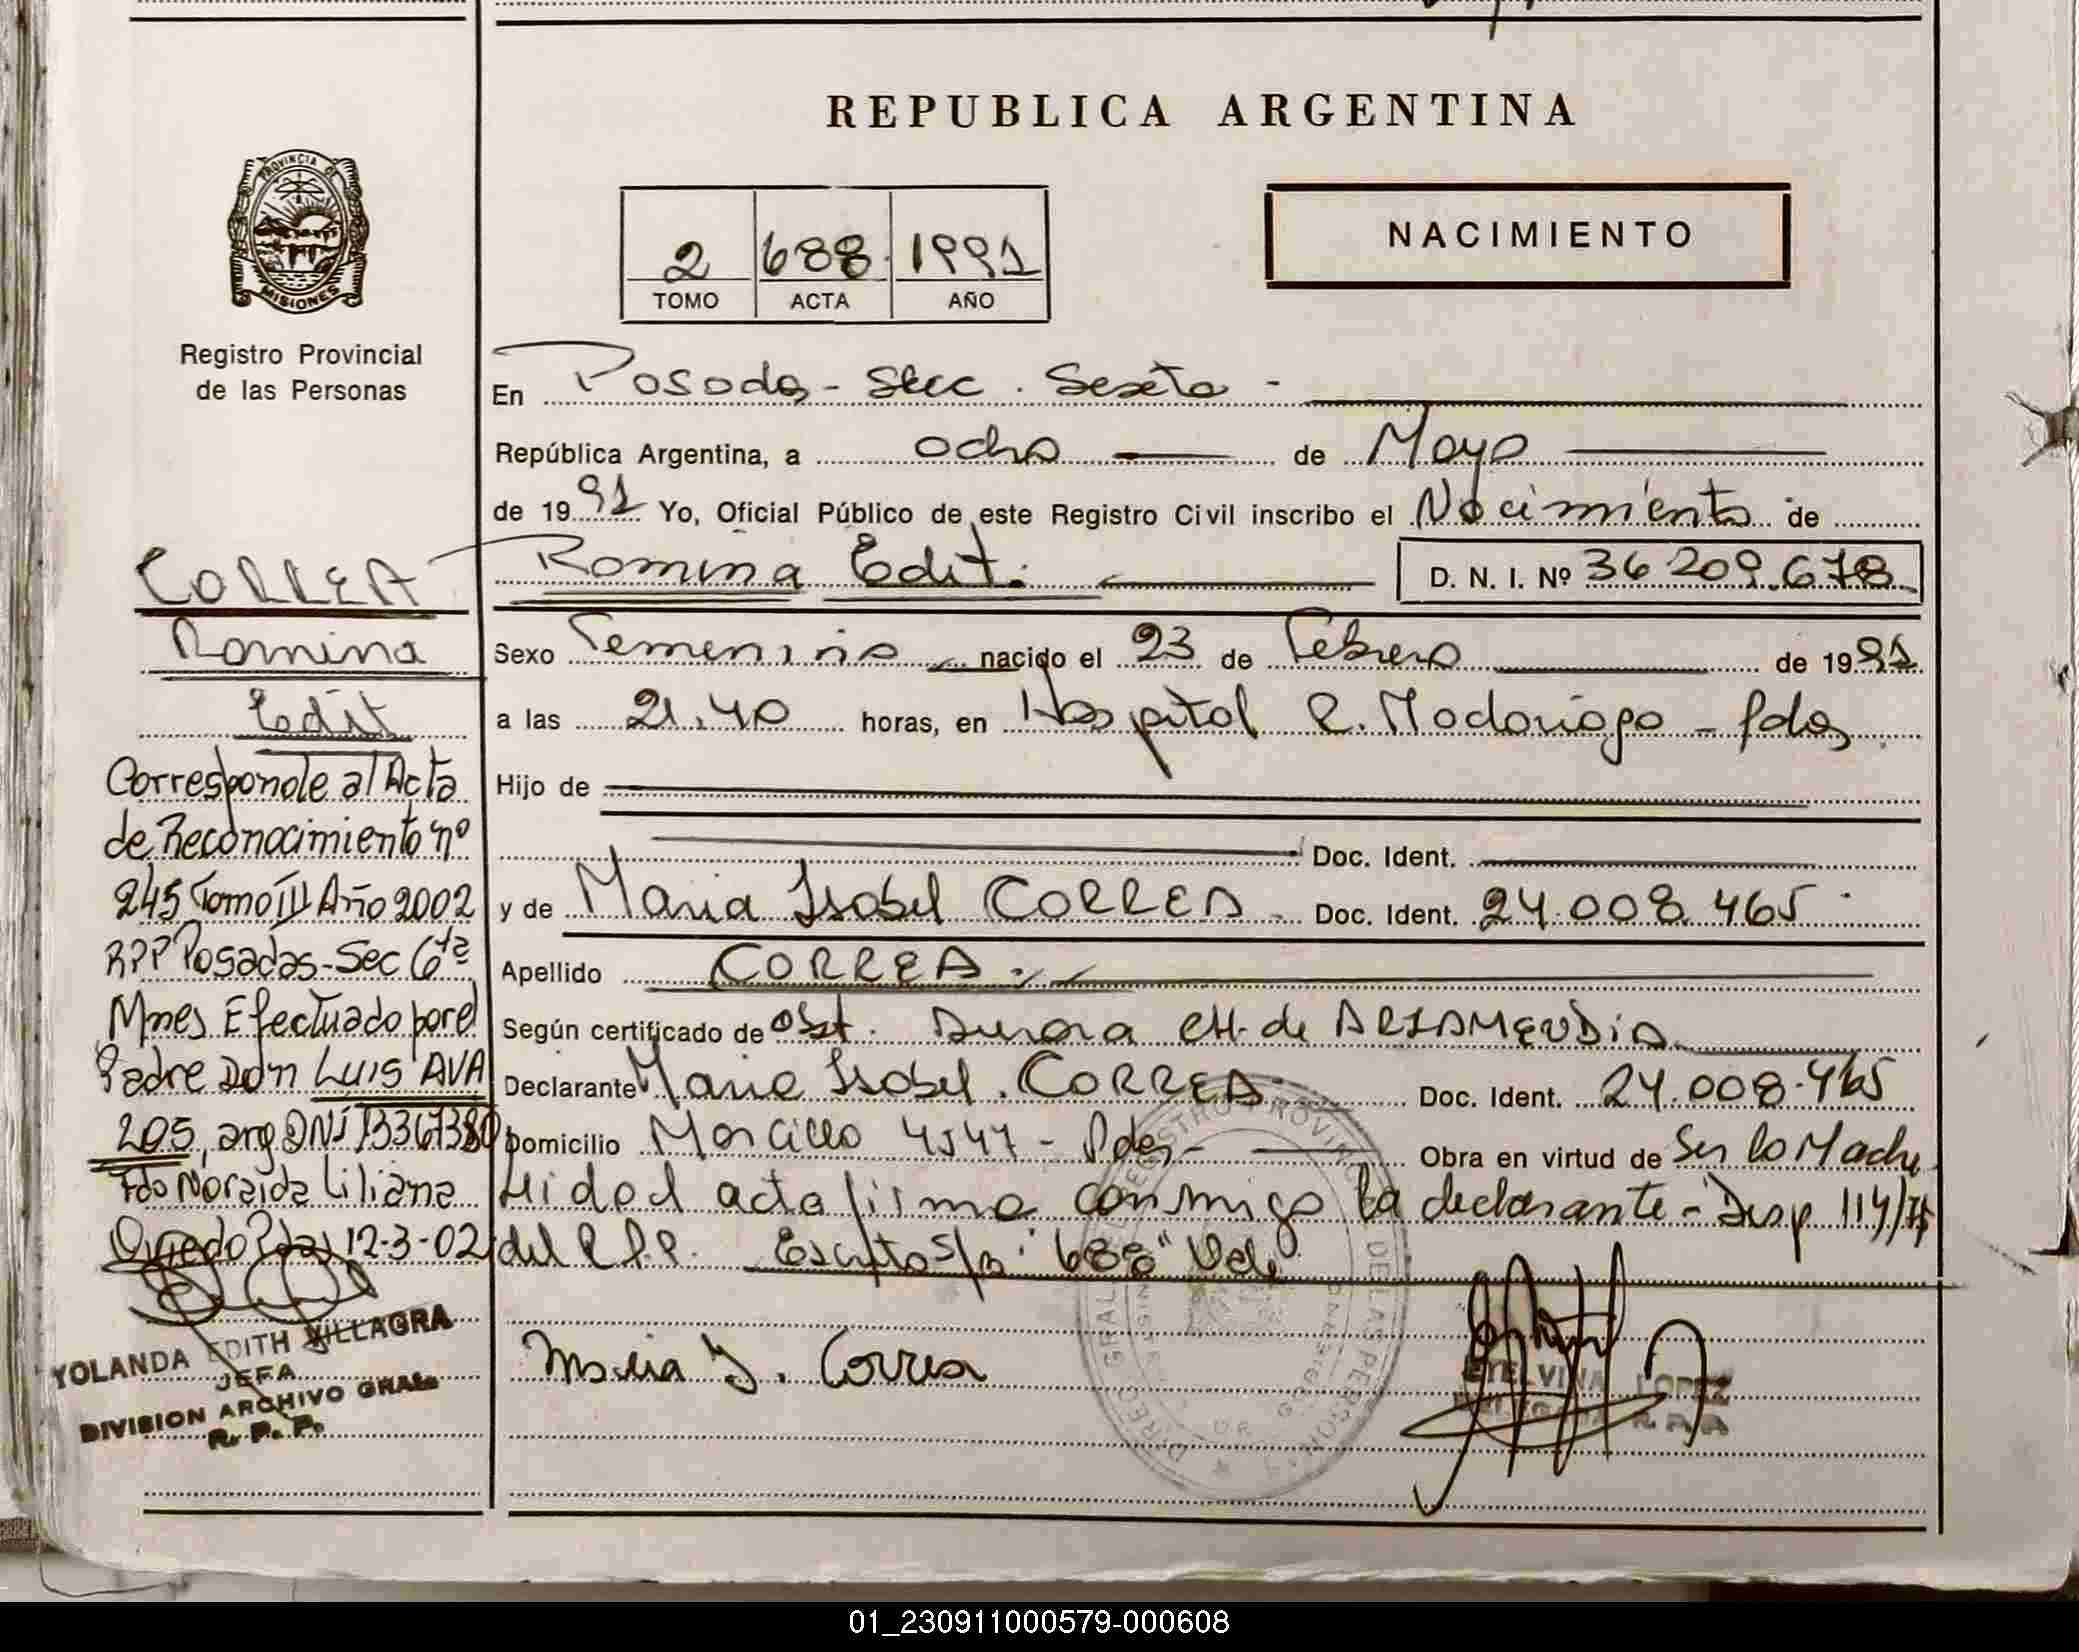 REPUBLICA ARGENTINA
PROVINCIA DE
MISIONES
Registro Provincial
de las Personas
2 688 1991
TOMO ACTA AÑO
NACIMIENTO
En Posadas - Secc. Sexta -
República Argentina, a ocho de Mayo
de 1991 Yo, Oficial Público de este Registro Civil inscribo el Nacimiento de
Romina Edit. D. N. I. Nº 36 209.678
Sexo Femenino nacido el 23 de Febrero de 1991
a las 21.40 horas, en Hospital R. Madariaga - Pdas
Hijo de
Doc. Ident.
y de Maria Isabel CORREA Doc. Ident. 24.008.465
Apellido CORREA
Según certificado de Obst. Aurora de
Declarante Maria Isabel CORREA Doc. Ident. 24.008.465
Domicilio 4547 - Pdas - Obra en virtud de Ser la Madre
Leida el acta firma conmigo la declarante - Disp 114/75
del R.P.P. Escrito s/r "688" Vale
Maria I. Correa
ETELVINA LOPEZ
DELEGADA R.P.P.
CORREA
Romina
Edit
Corresponde al Acta
de Reconocimiento nº
245 Tomo III Año 2002
RPP Posadas-Sec 6ta
Mnes Efectuado por el
Padre Don LUIS AVA
LOS, arg DNI 13367380
Fdo Noraida Liliana
Oviedo Pdas 12-3-02
YOLANDA EDITH VILLAGRA
JEFA
DIVISION ARCHIVO GRAL.
R. P. P.
01_230911000579-000608